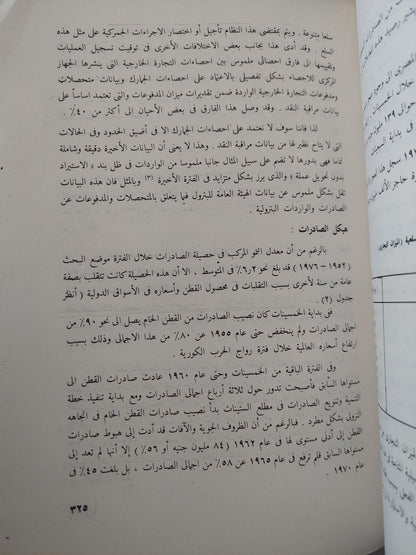 سلعا متنوعة . ويتم بمقتضى هذا النظام تأجيل أو اختصار الاجراءات الجمركية على مثل هذه
السلع . وقد أدى هذا بجانب بعض الاختلافات الأخرى فى توقيت تسجيل العمليات
وتقييمها الى فارق ملموس بين احصاءات التجارة الخارجية التى ينشرها الجهاز
المركزى للاحصاء بشكل تفصيلى بالاعتماد على احصاءات الجمارك وبيانات متحصلات
ومدفوعات التجارة الخارجية الواردة ضمن تقديرات ميزان المدفوعات والتى تعتمد اساساً على
بيانات مراقبة النقد . وقد وصل هذا الفارق فى بعض الأحيان الى أكثر من ٤٠٪ .
لذا فاننا سوف لا نعتمد على احصاءات الجمارك الا فى أضيق الحدود وفى الحالات
التى لا يتاح نظير لها من بيانات مراقبة النقد . وهذا لا يعنى أن البيانات الأخيرة دقيقة وشاملة
تماما فهى بدورها لا تضم على سبيل المثال جانبا ملموس من الواردات فى ظل بند « الاستيراد
بدون تحويل عملة » والذى برز بشكل متزايد فى الفترة الأخيرة (٣) وبالمثل فان هذه البيانات
تقل بشكل ملموس عن بيانات الهيئة العامة للبترول فيما يتعلق بالمتحصلات والمدفوعات عن
الصادرات والواردات البترولية .
هيكل الصادرات :
بالرغم من أن معدل النمو المركب فى حصيلة الصادرات خلال الفترة موضوع البحث
(١٩٥٢ – ١٩٧٦) قد بلغ نحو ٦ر٢٪ فى المتوسط ، الا أن هذه الحصيلة كانت تتقلب بصفة
عامة من سنة لأخرى بسبب التقلبات فى محصول القطن وأسعاره فى الأسواق الدولية ( أنظر
جدول (٢) .
ففى بداية الخمسينات كان نصيب الصادرات من القطن الخام يصل الى نحو ٩٠٪ من
اجمالى الصادرات ولم ينخفض حتى عام ١٩٥٥ عن ٨٠٪ من هذا الاجمالى وذلك بسبب
ارتفاع أسعاره العالمية خلال فترة رواج الحرب الكورية .
وفى الفترة الباقية من الخمسينات وحتى عام ١٩٦٠ عادت صادرات القطن الى
مستواها السابق فأصبحت تدور حول ثلاثة أرباع اجمالى الصادرات ومع بداية تنفيذ خطة
التنمية وتنويع الصادرات فى مطلع الستينات بدأ نصيب صادرات القطن الخام فى اتجاهه
النزولى بشكل مطرد . فبالرغم من أن الظروف الجوية والآفات قد أدت إلى هبوط صادرات
القطن إلى أدنى مستوى لها فى عام ١٩٦٢ (٨٤ مليون جنيه أو ٥٦٪) إلا أنها لم تعد إلى
مستواها السابق فلم ترتفع فى عام ١٩٦٥ عن ٥٨٪ من اجمالى الصادرات ، بل بلغت ٤٥٪ فى
عام ١٩٧٠ .
٣٢٥